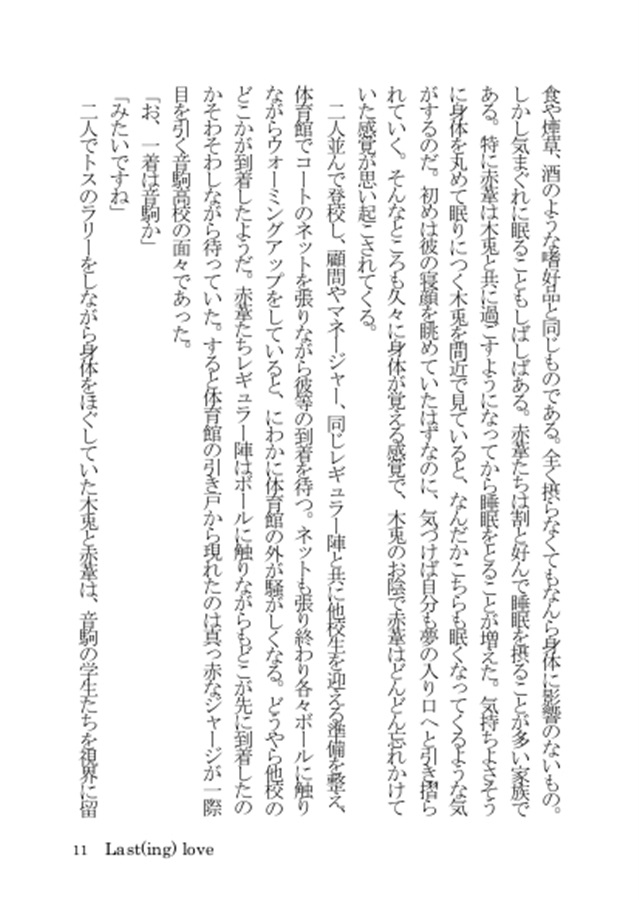 食や煙草、酒のような嗜好品と同じものである。全く摂らなくてもなんら身体に影響のないもの。
しかし気まぐれに眠ることもしばしばある。赤葦たちは割と好んで睡眠を摂ることが多い家族で
ある。特に赤葦は木兎と共に過ごすようになってから睡眠をとることが増えた。気持ちよさそう
に身体を丸めて眠りにつく木兎を間近で見ていると、なんだかこちらも眠くなってくるような気
がするのだ。初めは彼の寝顔を眺めていたはずなのに、気づけば自分も夢の入り口へと引き摺ら
れていく。そんなところも久々に身体が覚える感覚で、木兎のお陰で赤葦はどんどん忘れかけて
いた感覚が思い起こされてくる。
二人並んで登校し、顧問やマネージャー、同じレギュラー陣と共に他校生を迎える準備を整え、
体育館でコートのネットを張りながら彼等の到着を待つ。ネットも張り終わり各々ボールに触り
ながらウォーミングアップをしていると、にわかに体育館の外が騒がしくなる。どうやら他校の
どこかが到着したようだ。赤葦たちレギュラー陣はボールに触りながらもどこが先に到着したの
かそわそわしながら待っていた。すると体育館の引き戸から現れたのは真っ赤なジャージが一際
目を引く音駒高校の面々であった。
「お、一着は音駒か」
「みたいですね」
二人でトスのラリーをしながら身体をほぐしていた木兎と赤葦は、音駒の学生たちを視界に留
11 Last(ing) love